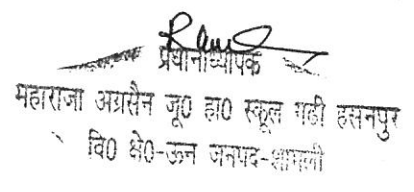 प्रधानाध्यापक
महाराजा अग्रसैन जू0 हा0 स्कूल गढी हसनपुर
वि0 क्षे0-ऊन जनपद-शामली